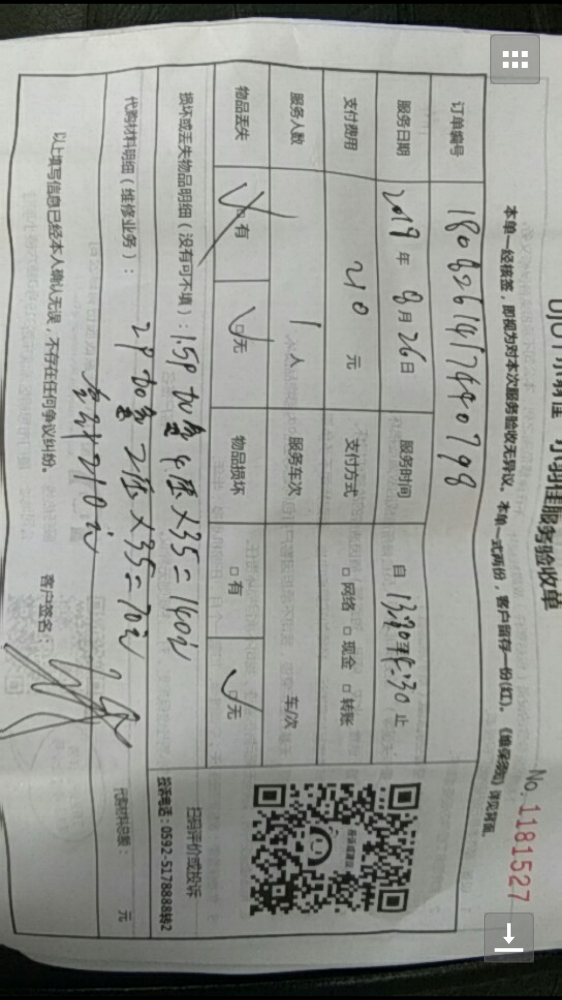 小羽佳服务验收单
No. 1181527
本单一经核签，即视为对本次服务验收无异议。本单一式两份，客户留存一份(红)。《维保须知》详见背面。
订单编号 180826141744079８
服务日期 2019 年 8月26日 服务时间 自 止
支付费用 210 元 支付方式 □ 网络 □ 现金 □ 转账
服务人数 1 人 服务车次 车/次
物品丢失 □ 有 □ 无 物品损坏 □ 有 □ 无
损坏或丢失物品明细（没有可不填）：1.5P 加氟 4压×35=140元
代购材料明细（维修业务）： 2P 加氟 2压×35=70元
合计210元
代购材料总额： 元
以上填写信息已经本人确认无误，不存在任何争议纠纷。 客户签名：
扫码评价或投诉
投诉电话：0592-5178888转2